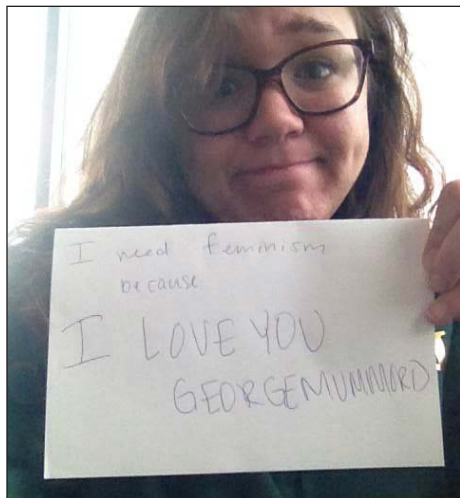 I need feminism
because
I LOVE YOU
GEORGEMUMMORD